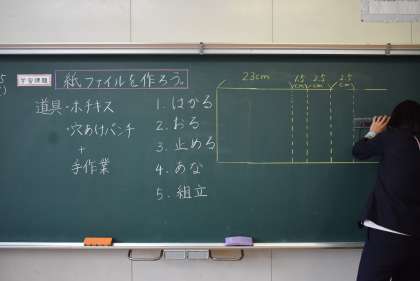 学習課題
紙ファイルを作ろう。
道具・ホチキス
・穴あけパンチ
+
手作業
1. はかる
2. おる
3. 止める
4. あな
5. 組立
23cm
1.5cm
2.5cm
2.5cm